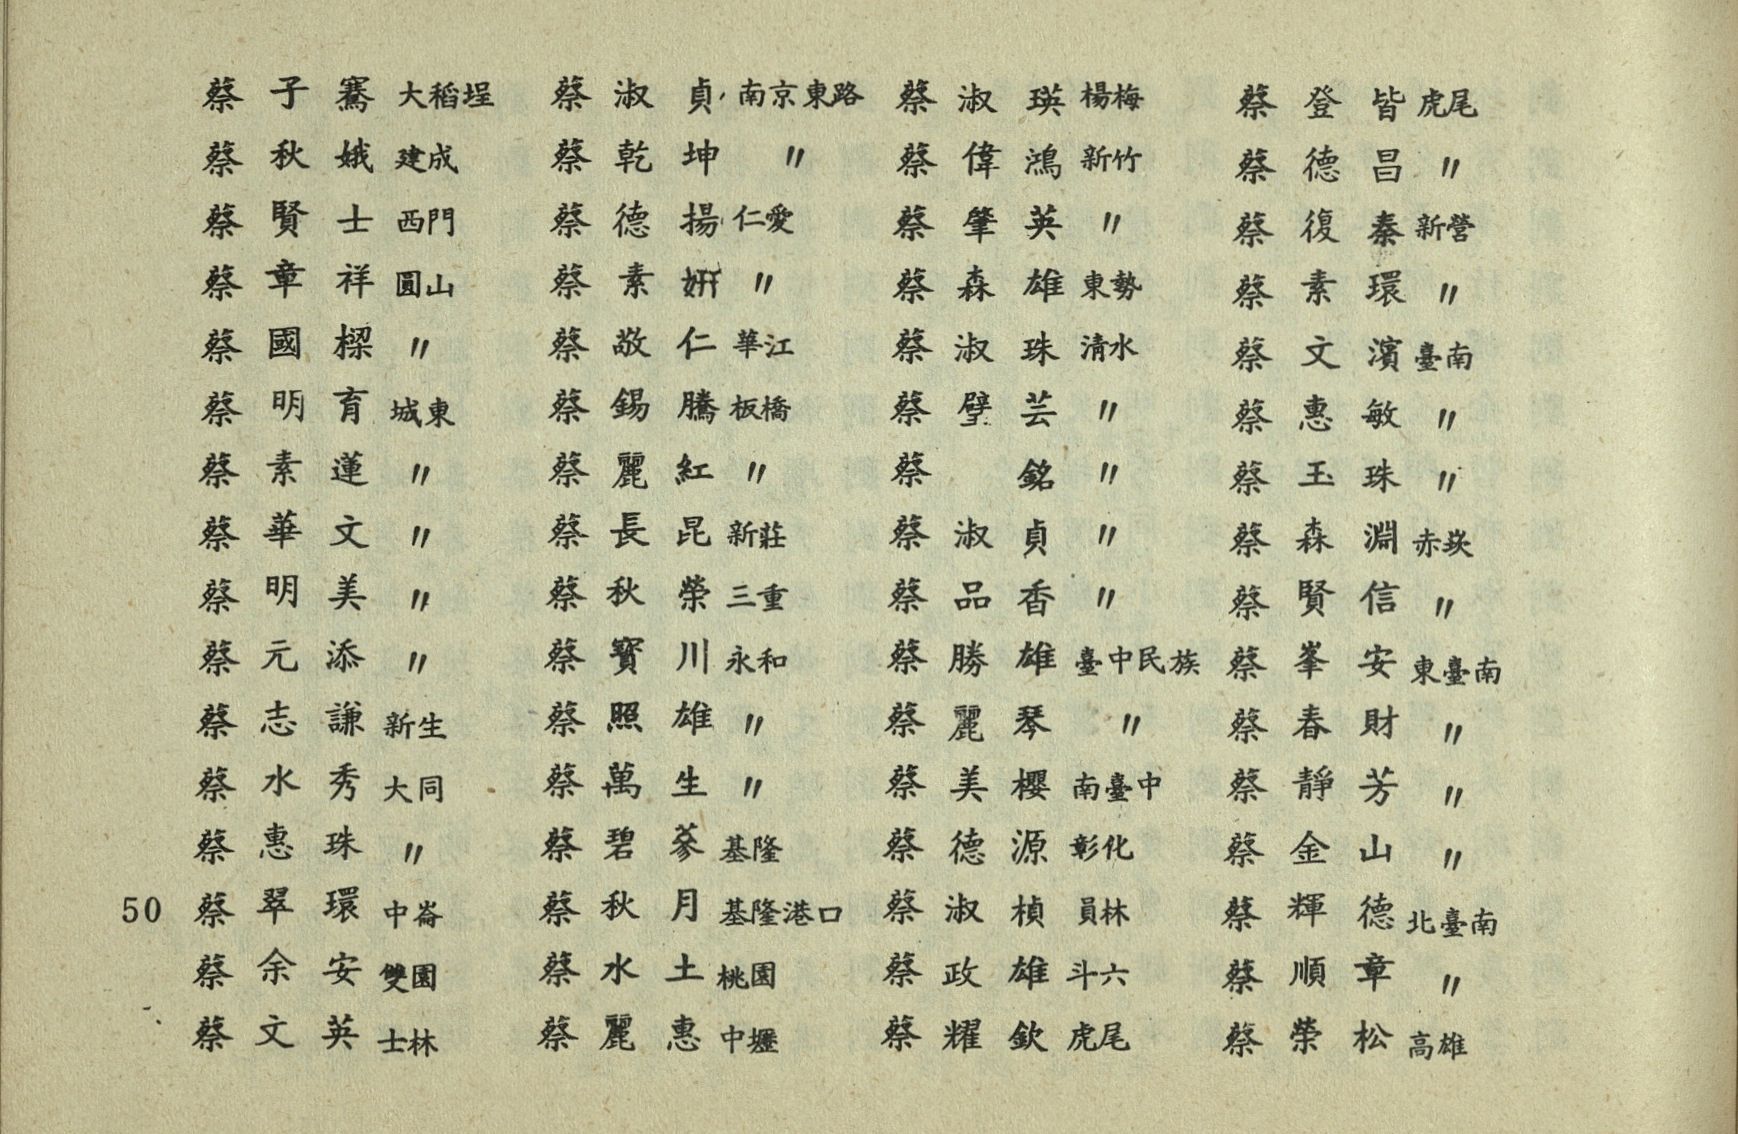 蔡子騫 大稻埕
蔡秋娥 建成
蔡賢士 西門
蔡章祥 圓山
蔡國樑 〃
蔡明育 城東
蔡素蓮 〃
蔡華文 〃
蔡明美 〃
蔡元添 〃
蔡志謙 新生
蔡水秀 大同
蔡惠珠 〃
50 蔡翠環 中崙
蔡余安 雙園
蔡文英 士林
蔡淑貞 南京東路
蔡乾坤 〃
蔡德揚 仁愛
蔡素姸 〃
蔡敬仁 華江
蔡錫騰 板橋
蔡麗紅 〃
蔡長昆 新莊
蔡秋榮 三重
蔡寶川 永和
蔡照雄 〃
蔡萬生 〃
蔡碧蓼 基隆
蔡秋月 基隆港口
蔡水土 桃園
蔡麗惠 中壢
蔡淑瑛 楊梅
蔡偉鴻 新竹
蔡肇英 〃
蔡森雄 東勢
蔡淑珠 清水
蔡璧芸 〃
蔡銘 〃
蔡淑貞 〃
蔡品香 〃
蔡勝雄 臺中民族
蔡麗琴 〃
蔡美櫻 南臺中
蔡德源 彰化
蔡淑楨 員林
蔡政雄 斗六
蔡耀欽 虎尾
蔡登皆 虎尾
蔡德昌 〃
蔡復秦 新營
蔡素環 〃
蔡文濱 臺南
蔡惠敏 〃
蔡玉珠 〃
蔡森淵 赤崁
蔡賢信 〃
蔡峯安 東臺南
蔡春財 〃
蔡靜芳 〃
蔡金山 〃
蔡輝德 北臺南
蔡順章 〃
蔡榮松 高雄